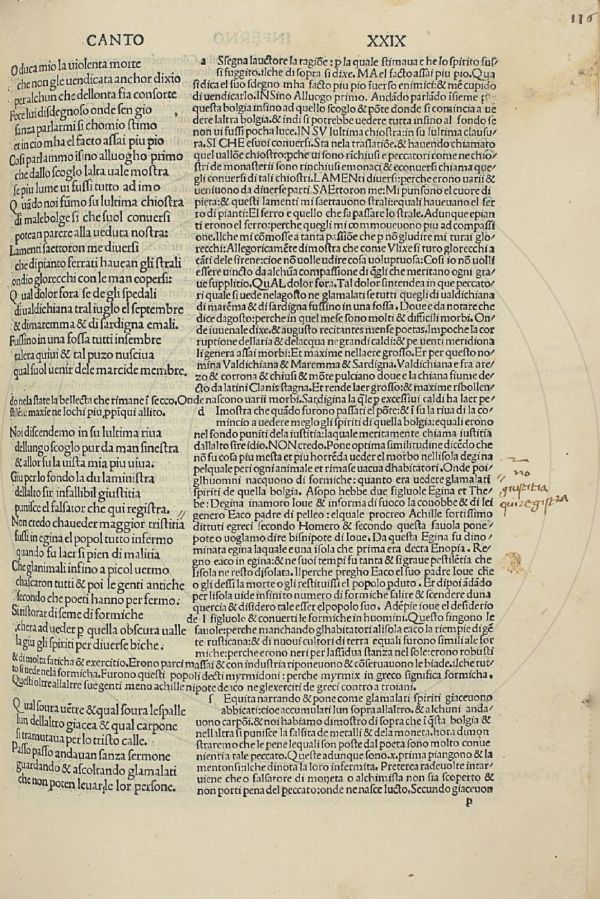 116
CANTO XXIX
O duca mio la uiolenta morte
che non gle uendicata anchor dixio
per alchun che dellonta fia consorte
Fece lui disdegnoso onde sen gio
sanza parlarmi si chomio stimo
et in cio mha el facto assai piu pio
Cosi parlammo isino alluogho primo
che dallo scoglo laltra uale mostra
se piu lume ui fussi tutto ad imo
Quãdo noi fũmo su lultima chiostra
di malebolge si che suoi conuersi
potean parere alla ueduta nostra:
Lamenti saettoron me diuersi
che di pianto ferrati hauean gli strali
ondio glorecchi con le man copersi:
Qual dolor fora se de gli spedali
di ualdichiana tral iuglo el septembre
& dimaremma & di sardigna e mali.
Fussino in una fossa tutti insembre
tal era quiui & tal puzo nusciua
qual suol uenir dele marcide membre.
Noi discendemo in su lultima riua
del lungo scoglo pur da man sinestra
& allor fu la uista mia piu uiua.
Giu per lo fondo la du laministra
dellalto sir infallibil giustitia
punisce el falsator che qui registra.
Non credo chaueder maggior tristitia
fussi in egina el popol tutto infermo
quando fu laer si pien di malitia
Che glanimali infino a picol uermo
chascaron tutti & poi le genti antiche
secondo che poeti hanno per fermo.
Si ristorar di seme di formiche
chera ad ueder p quella obscura ualle
la giu gli spiriti per diuerse biche.
Qual soura uẽtre & qual soura lespalle
lun dellaltro giacea & qual carpone
si tramutaua per lo tristo calle.
Passo passo andauan sanza sermone
guardando & ascoltando glamalati
che non poten leuar le lor persone.
a Ssegna lauctore la ragiõe: p la quale stimaua che lo spirito fus/
si fuggito. ilche di sopra si dixe. MA el facto assai piu pio. Qua
si dica el suo sdegno mha facto piu pio fuerso enimici: & me cupido
di uendicarlo. INSino Alluogo primo. Andado parlãdo
questa bolgia insino ad quello scoglo & põte donde si comincia a ue
dere laltra bolgia. & indi si potrebbe uedere tutta insino al fondo se
non ui fussi pocha luce. IN SV lultima chiostra: in su lultima clausu/
ra. SI CHE esuoi conuersi. Sta nela traslatiõe. & hauendo chiamato
quel uallõe chiostro: pche ui sono richiusi e peccatori come ne chio/
stri de monasterii sono rinchiusi e monaci & econuersi chiama que/
gli conuersi di tali chiostri. LAMENti diuersi: perche erono uarii &
ueniuono da diuerse parti. SAEttoron me: Mi punsono el cuore di
pieta: & questi lamenti mi saettauono strali: equali haueuano el fer
ro di pianti: El ferro e quello che fa passare lo strale. Adunque epian
ti erono el ferro: perche quegli mi commoueuono piu ad compassi
one. Ilche mi cõmosse a tanta passiõe che p nõ gludire mi turai glo/
recchi: Allegoricamẽte dimostra che come Vlixe si turo glorecchi a
cãti dele sirene: cioe nõ uolle udire cosa uoluptuosa: Cosi io nõ uolli
essere uincto da alchũa compassione di q̃gli che meritano ogni gra/
ue supplitio. QVAL dolor fora. Tal dolor sintendea in que peccato/
ri quale si uede nelagosto ne glamalati se tutti quegli di ualdichiana
di marẽma & di sardigna fussino in una fossa. Doue e da notare che
dice dagosto: perche in quel mese sono molti & difficili morbi. On
de iuuenale dixe. & augusto recitantes mense poetas. Impoche la cor
ruptione dellaria & delacqua ne grandi caldi: & pe uenti meridiona
li genera assai morbi: Et maxime nellaere grosso. Er per questo no/
mina Valdichiana & Maremma & Sardigna. Valdichiana e fra are/
zo & cortona & chiusi & mõte pulciano doue e la chiana fiume dec
to da latini Clanis stagna. Et rende laer grosso: & maxime ribollen/
do nela state la bellecta che rimane ĩ secco. Onde nascono uarii morbi. Sardigna la q̃le p excessiui caldi ha laer pe/
stilẽte: maxie ne lochi piu ppĩqui allito.
d Imostra che quãdo furono passati el põte: & ĩ su la riua di la co/
mincio a uedere meglo gli spiriti di quella bolgia: equali erono
nel fondo puniti dela iustitia: laquale meritamente chiama iustitia
dallalto sire idio. NON credo. Pone optima similitudine dicẽdo che
nõ fu cosa piu mesta et piu horrẽda ueder el morbo nellisola degina
pel quale peri ogni animale et rimase uacua dhabitatori. Onde poi/
glhuomni nacquono di formiche: quanto era uedere glamalati
spiriti de quella bolgia. Asopo hebbe due figluole Egina et The
be: Degina inamoro Ioue & informa di fuoco la conobbe & di lei
genero Eaco padre di pelleo: el quale procreo Achille fortissimo
dittuti egreci secondo Homero & secondo questa fauola pone/
pote o uoglamo dire bisnipote di Ioue. Da questa Egina fu dino/
minata egina laquale e una isola che prima era decta Enopia. Re/
gno eaco in egina: & ne suoi tempi fu tanta & si graue pestilẽtia che
lisola ne resto disolata. Ilperche prego Eaco el suo padre Ioue che
o gli dessi la morte o gli restituissi el popolo pduto. Et dipoi adãdo
per lisola uide infinito numero di formiche salire & scendere duna
quercia & disidero tale esser elpopolo suo. Adẽpie ioue el desiderio
de l figluolo & conuerti le formiche in huomini. Questo fingono le
fauole: perche manchando glhabitatori alisola eaco la riempie digẽ/
te rusticana: & di nuoui cultori di terra equali furono simili ale for
miche: perche erono neri per lassidua stanza nel sole: erono robusti
& di molta faticha & exercitio. Erono parci massai & con industria riponeuono & cõseruauono le biade. ilche tut/
to si uede nela formicha. Furono questi popoli decti myrmidoni: perche myrmix in greco significa formicha.
Questi oltre allaltre sue genti meno achille nipote deico ne glexerciti de greci contro a troiani.
s Equita narrando & pone come glamalati spiriti giaceuono
abbicati: cioe accomulati lun sopra allaltro. & alchuni anda/
uono carpõi. & noi habbiamo dimostro di sopra che ĩ q̃sta bolgia &
nellaltra si punisce la falsita de metalli & dela moneta. hora dimon
straremo che le pene lequali son poste dal poeta sono molto conue
nienti a tale peccato. Queste adunque sono. x. prima piangono & la
mentonsi: ilche dinota la loro infermita. Preterea radeuolte inter/
uiene che o falsatore di moneta o alchimista non sia scoperto &
non porti pena del peccato: onde ne nasce lucto. Secundo giaceuon
p
no
giustitia
qui registra